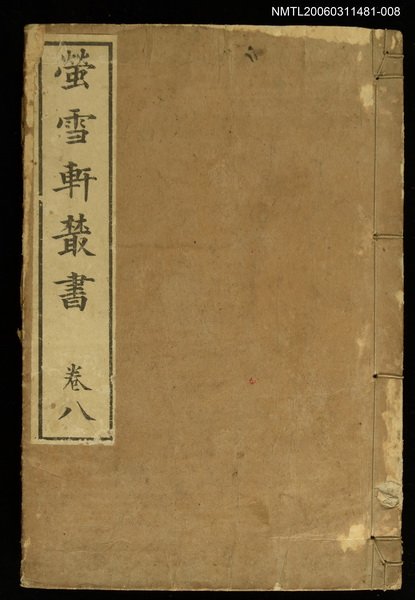 NMTL20060311481-008
螢雪軒叢書
卷八